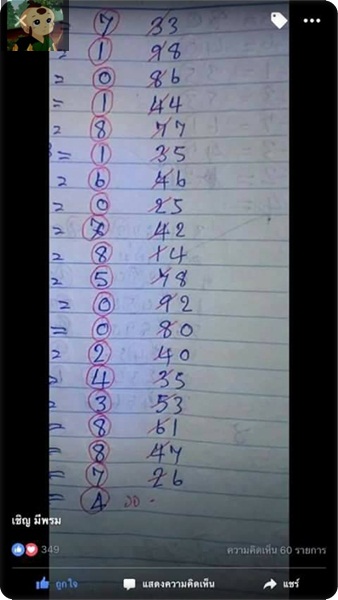 = 7 33
= 1 98
= 0 86
= 1 44
= 8 77
= 1 35
= 6 46
= 0 25
= 7 42
= 8 14
= 5 78
= 0 92
= 0 80
= 2 40
= 4 35
= 3 53
= 8 61
= 8 47
= 7 26
= 4
เชิญ มีพรม
349
ความคิดเห็น 60 รายการ
ถูกใจ
แสดงความคิดเห็น
แชร์